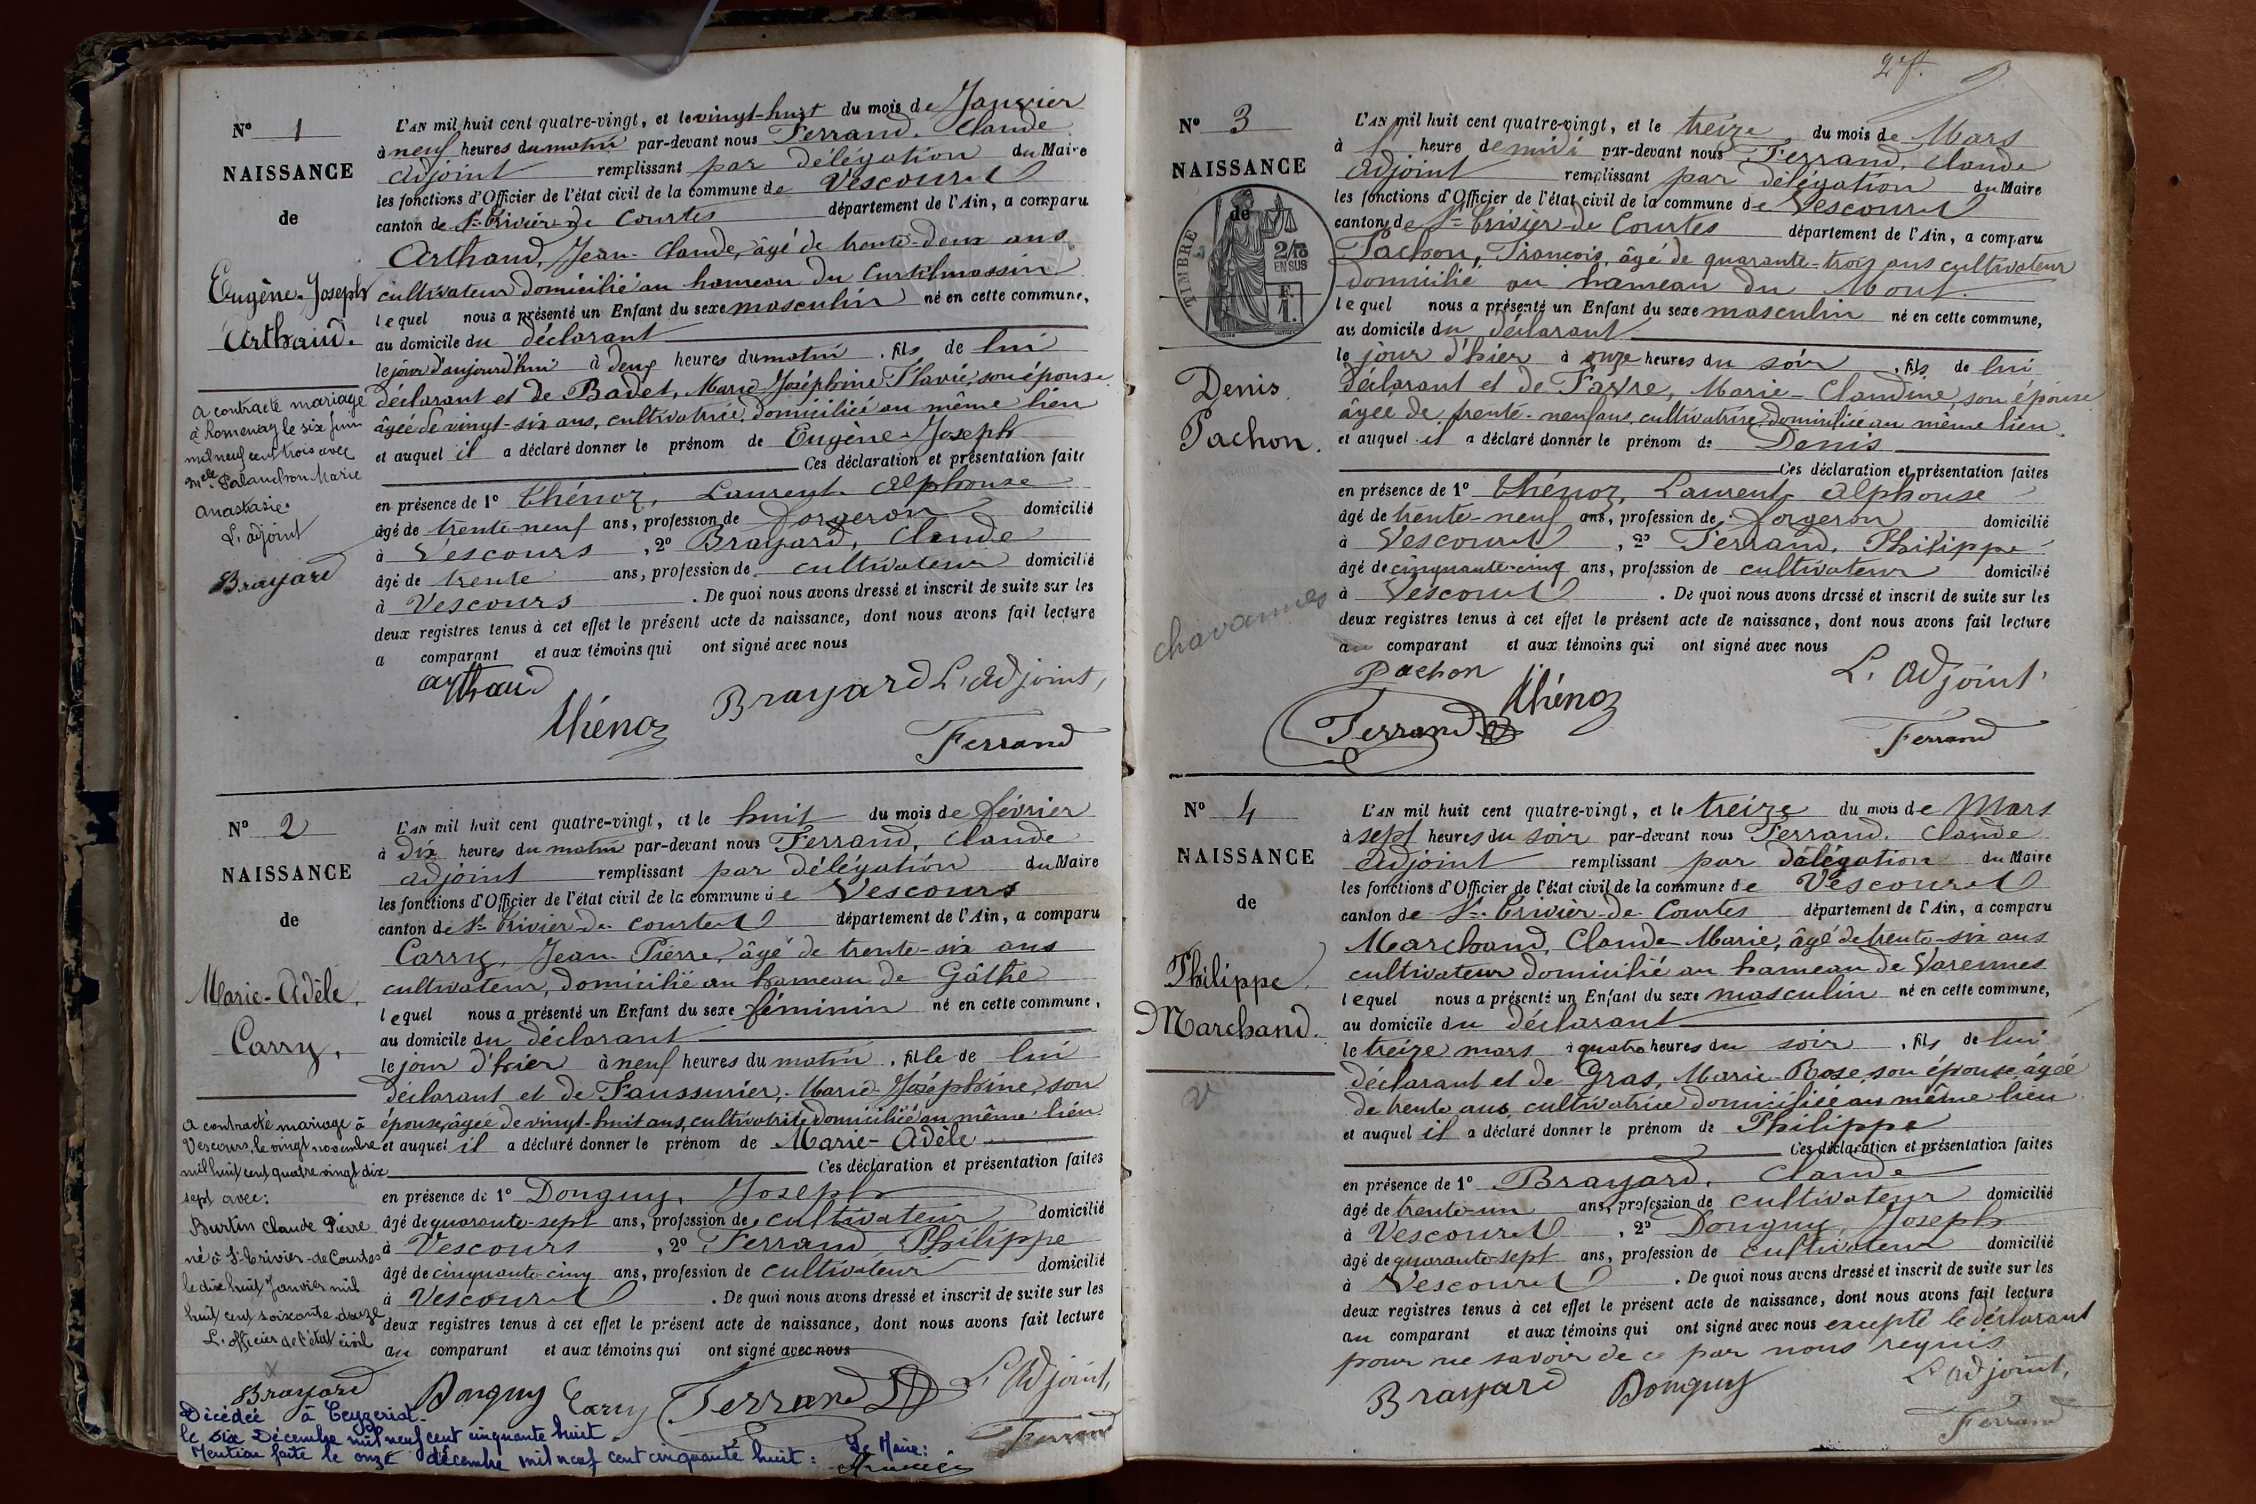 N° 1
NAISSANCE
de
Eugène-Joseph
Arthaud.
a contracté mariage
à Romenay le six juin
mil neuf cent trois avec
Melle Palanchon Marie
Anastasie.
L'adjoint
Brayard
L'AN mil huit cent quatre-vingt, et le vingt-huit du mois de Janvier
à neuf heures du matin par-devant nous Ferrand, Claude
adjoint remplissant par délégation du Maire
les fonctions d'Officier de l'état civil de la commune de Vescours
canton de St-Trivier-de Courtes département de l'Ain, a comparu
Arthaud, Jean-Claude, âgé de trente-deux ans
cultivateur domicilié au hameau du
lequel nous a présenté un Enfant du sexe masculin né en cette commune,
au domicile du déclarant
le jour d'aujourd'hui à deux heures du matin, fils de lui
déclarant et de Badet, Marie Joséphine Flavie, son épouse
âgée de vingt-six ans, cultivatrice domiciliée au même lieu
et auquel il a déclaré donner le prénom de Eugène-Joseph
Ces déclaration et présentation faite
en présence de 1° Thénoz, Laurent Alphonse
âgé de trente-neuf ans, profession de forgeron domicilié
à Vescours, 2° Brayard, Claude
âgé de trente ans, profession de cultivateur domicilié
à Vescours. De quoi nous avons dressé et inscrit de suite sur les
deux registres tenus à cet effet le présent acte de naissance, dont nous avons fait lecture
a comparant et aux témoins qui ont signé avec nous
Arthaud
Thénoz
Brayard L'adjoint,
Ferrand
N° 2
NAISSANCE
de
Marie-Adèle.
Carry.
a contracté mariage à
Vescours, le vingt novembre
mil huit cent quatre vingt dix
sept avec:
Burtin Claude Pierre
né à St-Trivier-de-Courtes
le dix huit Janvier mil
huit cent soixante douze
L'officier de l'état civil
Brayard
L'AN mil huit cent quatre-vingt, et le huit du mois de février
à dix heures du matin par-devant nous Ferrand, Claude
adjoint remplissant par délégation du Maire
les fonctions d'Officier de l'état civil de la commune de Vescours
canton de St-Trivier-de-Courtes département de l'Ain, a comparu
Carry, Jean-Pierre, âgé de trente-six ans
cultivateur, domicilié au hameau de Gâthe
lequel nous a présenté un Enfant du sexe féminin né en cette commune,
au domicile du déclarant
le jour d'hier à neuf heures du matin, fille de lui
déclarant et de Faussurier, Marie-Joséphine, son
épouse, âgée de vingt-huit ans, cultivatrice domiciliée au même lieu
et auquel il a déclaré donner le prénom de Marie-Adèle
Ces déclaration et présentation faites
en présence de 1° Donguy, Joseph
âgé de quarante-sept ans, profession de cultivateur domicilié
à Vescours, 2° Ferrand Philippe
âgé de cinquante-cinq ans, profession de cultivateur domicilié
à Vescours. De quoi nous avons dressé et inscrit de suite sur les
deux registres tenus à cet effet le présent acte de naissance, dont nous avons fait lecture
au comparant et aux témoins qui ont signé avec nous
Donguy Carry Ferrand L'adjoint,
Ferrand
Décédée à Ceyzeriat
le six Décembre mil neuf cent cinquante huit.
Mention faite le onze décembre mil neuf cent cinquante huit: Le Maire:
2 f.
N° 3
NAISSANCE
de
TIMBRE
2/10
EN SUS
F.
1.
Denis
Pachon.
chavannes
L'AN mil huit cent quatre-vingt, et le treize du mois de Mars
à 1 heure de midi par-devant nous Ferrand, Claude
adjoint remplissant par délégation du Maire
les fonctions d'Officier de l'état civil de la commune de Vescours
canton de St-Trivier-de Courtes département de l'Ain, a comparu
Pachon, François, âgé de quarante-trois ans cultivateur
domicilié au hameau du Mont.
lequel nous a présenté un Enfant du sexe masculin né en cette commune,
au domicile du déclarant
le jour d'hier à onze heures du soir, fils de lui
déclarant et de Favre, Marie-Claudine son épouse
âgée de trente-neuf ans, cultivatrice, domiciliée au même lieu
et auquel il a déclaré donner le prénom de Denis
Ces déclaration et présentation faites
en présence de 1° Thénoz, Laurent Alphonse
âgé de trente-neuf ans, profession de forgeron domicilié
à Vescours, 2° Ferrand, Philippe
âgé de cinquante-cinq ans, profession de cultivateur domicilié
à Vescours. De quoi nous avons dressé et inscrit de suite sur les
deux registres tenus à cet effet le présent acte de naissance, dont nous avons fait lecture
au comparant et aux témoins qui ont signé avec nous
Pachon Thénoz L'adjoint,
Ferrand Ferrand
N° 4
NAISSANCE
de
Philippe
Marchand.
V
L'AN mil huit cent quatre-vingt, et le treize du mois de Mars
à sept heures du soir par-devant nous Ferrand, Claude
adjoint remplissant par délégation du Maire
les fonctions d'Officier de l'état civil de la commune de Vescours
canton de St-Trivier-de-Courtes département de l'Ain, a comparu
Marchand, Claude-Marie, âgé de trente-six ans
cultivateur domicilié au hameau de Varennes
lequel nous a présenté un Enfant du sexe masculin né en cette commune,
au domicile du déclarant
le treize mars à quatre heures du soir, fils de lui
déclarant et de Gras, Marie-Rose, son épouse, âgée
de trente ans, cultivatrice domiciliée au même lieu
et auquel il a déclaré donner le prénom de Philippe
Ces déclaration et présentation faites
en présence de 1° Brayard, Claude
âgé de trente-un ans, profession de cultivateur domicilié
à Vescours, 2° Donguy, Joseph
âgé de quarante-sept ans, profession de cultivateur domicilié
à Vescours. De quoi nous avons dressé et inscrit de suite sur les
deux registres tenus à cet effet le présent acte de naissance, dont nous avons fait lecture
au comparant et aux témoins qui ont signé avec nous excepté le déclarant
pour ne savoir de ce par nous requis
Brayard Donguy L'adjoint,
Ferrand